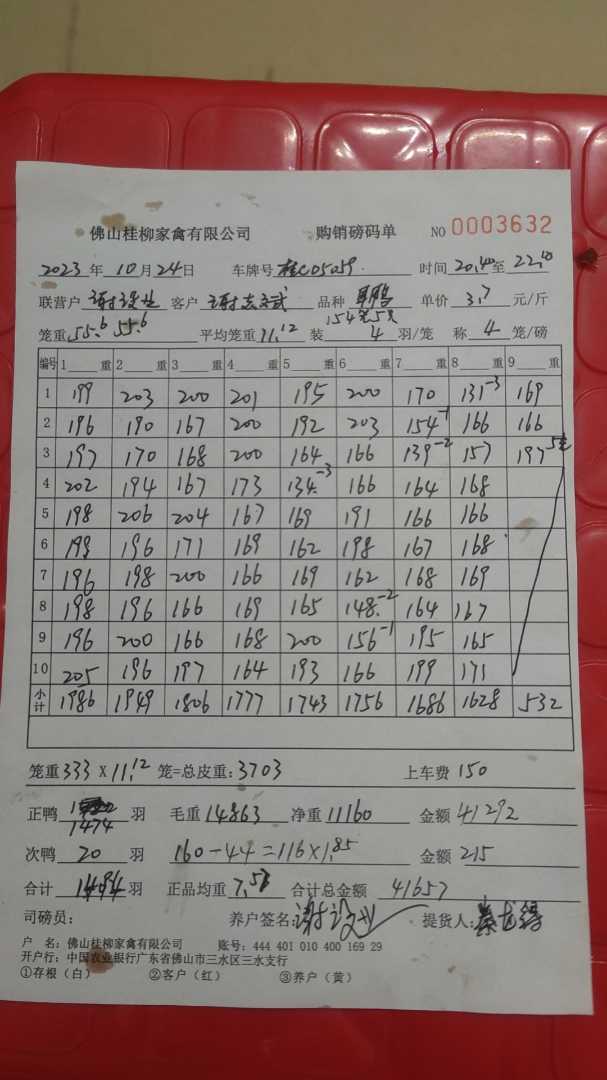 佛山桂柳家禽有限公司 购销磅码单 NO 0003632
2023 年 10 月 24 日 车牌号 桂C05059. 时间 20.40 至 22.10
联营户 客户 品种 单价 3.7 元/斤
笼重 55.6 55.6 平均笼重 11.12 装 4 羽/笼 称 4 笼/磅
编号 1 重 2 重 3 重 4 重 5 重 6 重 7 重 8 重 9 重
1 199 203 200 201 195 200 170 131-3 169
2 196 190 167 200 192 203 154-1 166 166
3 197 170 168 200 164 166 139-2 157 197
4 202 194 167 173 134-3 166 164 168
5 198 206 204 167 169 191 166 166
6 199 196 171 169 162 198 167 168
7 196 198 200 166 169 162 168 169
8 198 196 166 169 165 148-2 164 167
9 196 200 166 168 200 156-1 195 165
10 205 196 197 164 193 166 199 171
小计 1986 1949 1806 1777 1743 1756 1686 1628 532
笼重 333 X 11.12 笼=总皮重: 3703 上车费 150
正鸭 1474 羽 毛重 14863 净重 11160 金额 41292
次鸭 20 羽 160-44=116×1.85 金额 215
合计 1494 羽 正品均重 7.58 合计总金额 41657
司磅员: 养户签名: 提货人:
户 名: 佛山桂柳家禽有限公司 账号: 444 401 010 400 169 29
开户行: 中国农业银行广东省佛山市三水区三水支行
①存根(白) ②客户(红) ③养户(黄)